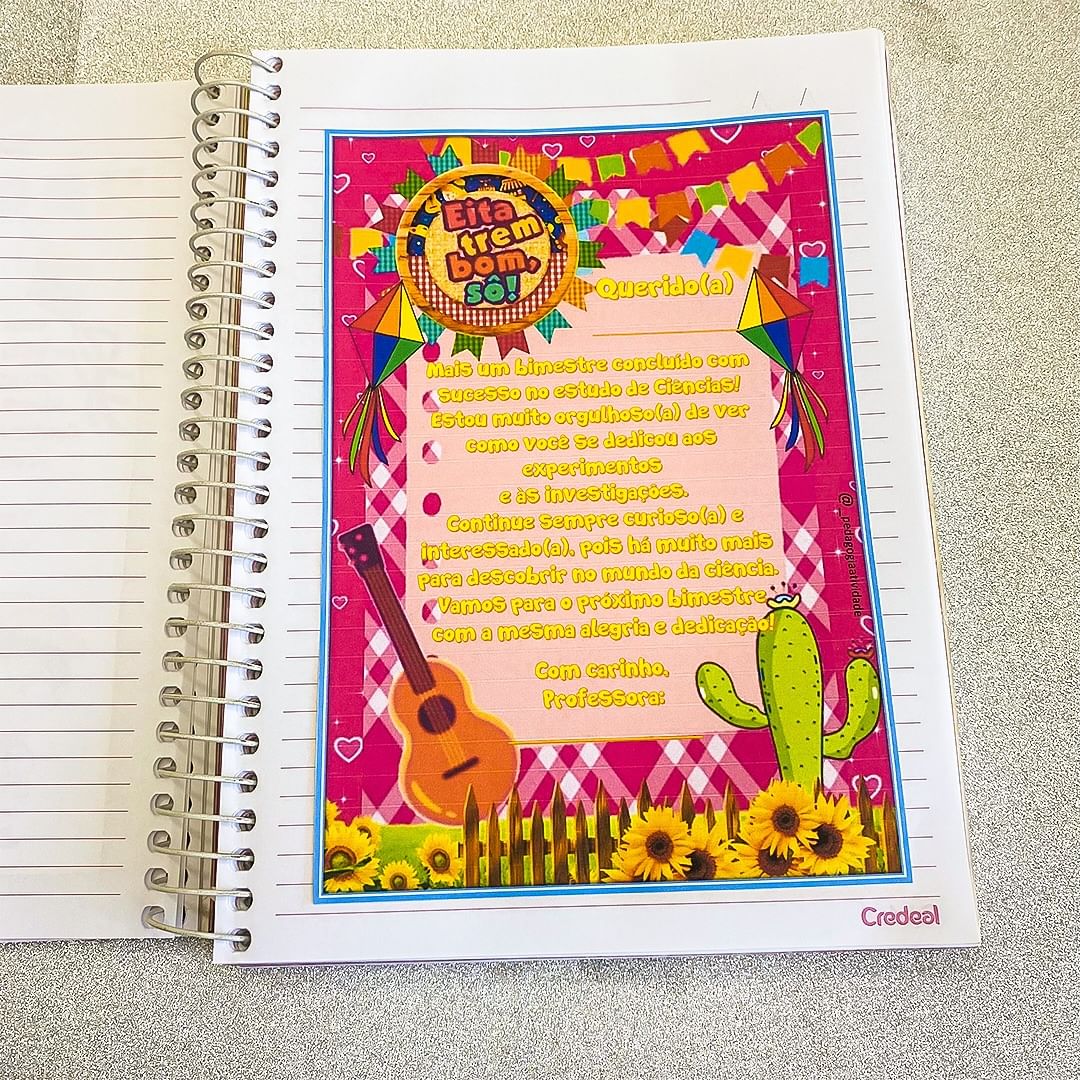 Eita
trem
bom,
sô!
Querido(a)
Mais um bimestre concluído com
sucesso no estudo de Ciências!
Estou muito orgulhoso(a) de ver
como você se dedicou aos
experimentos
e às investigações.
Continue sempre curioso(a) e
interessado(a), pois há muito mais
para descobrir no mundo da ciência.
Vamos para o próximo bimestre
com a mesma alegria e dedicação!
Com carinho,
Professora:
@_pedagogiaatividade
Credeal